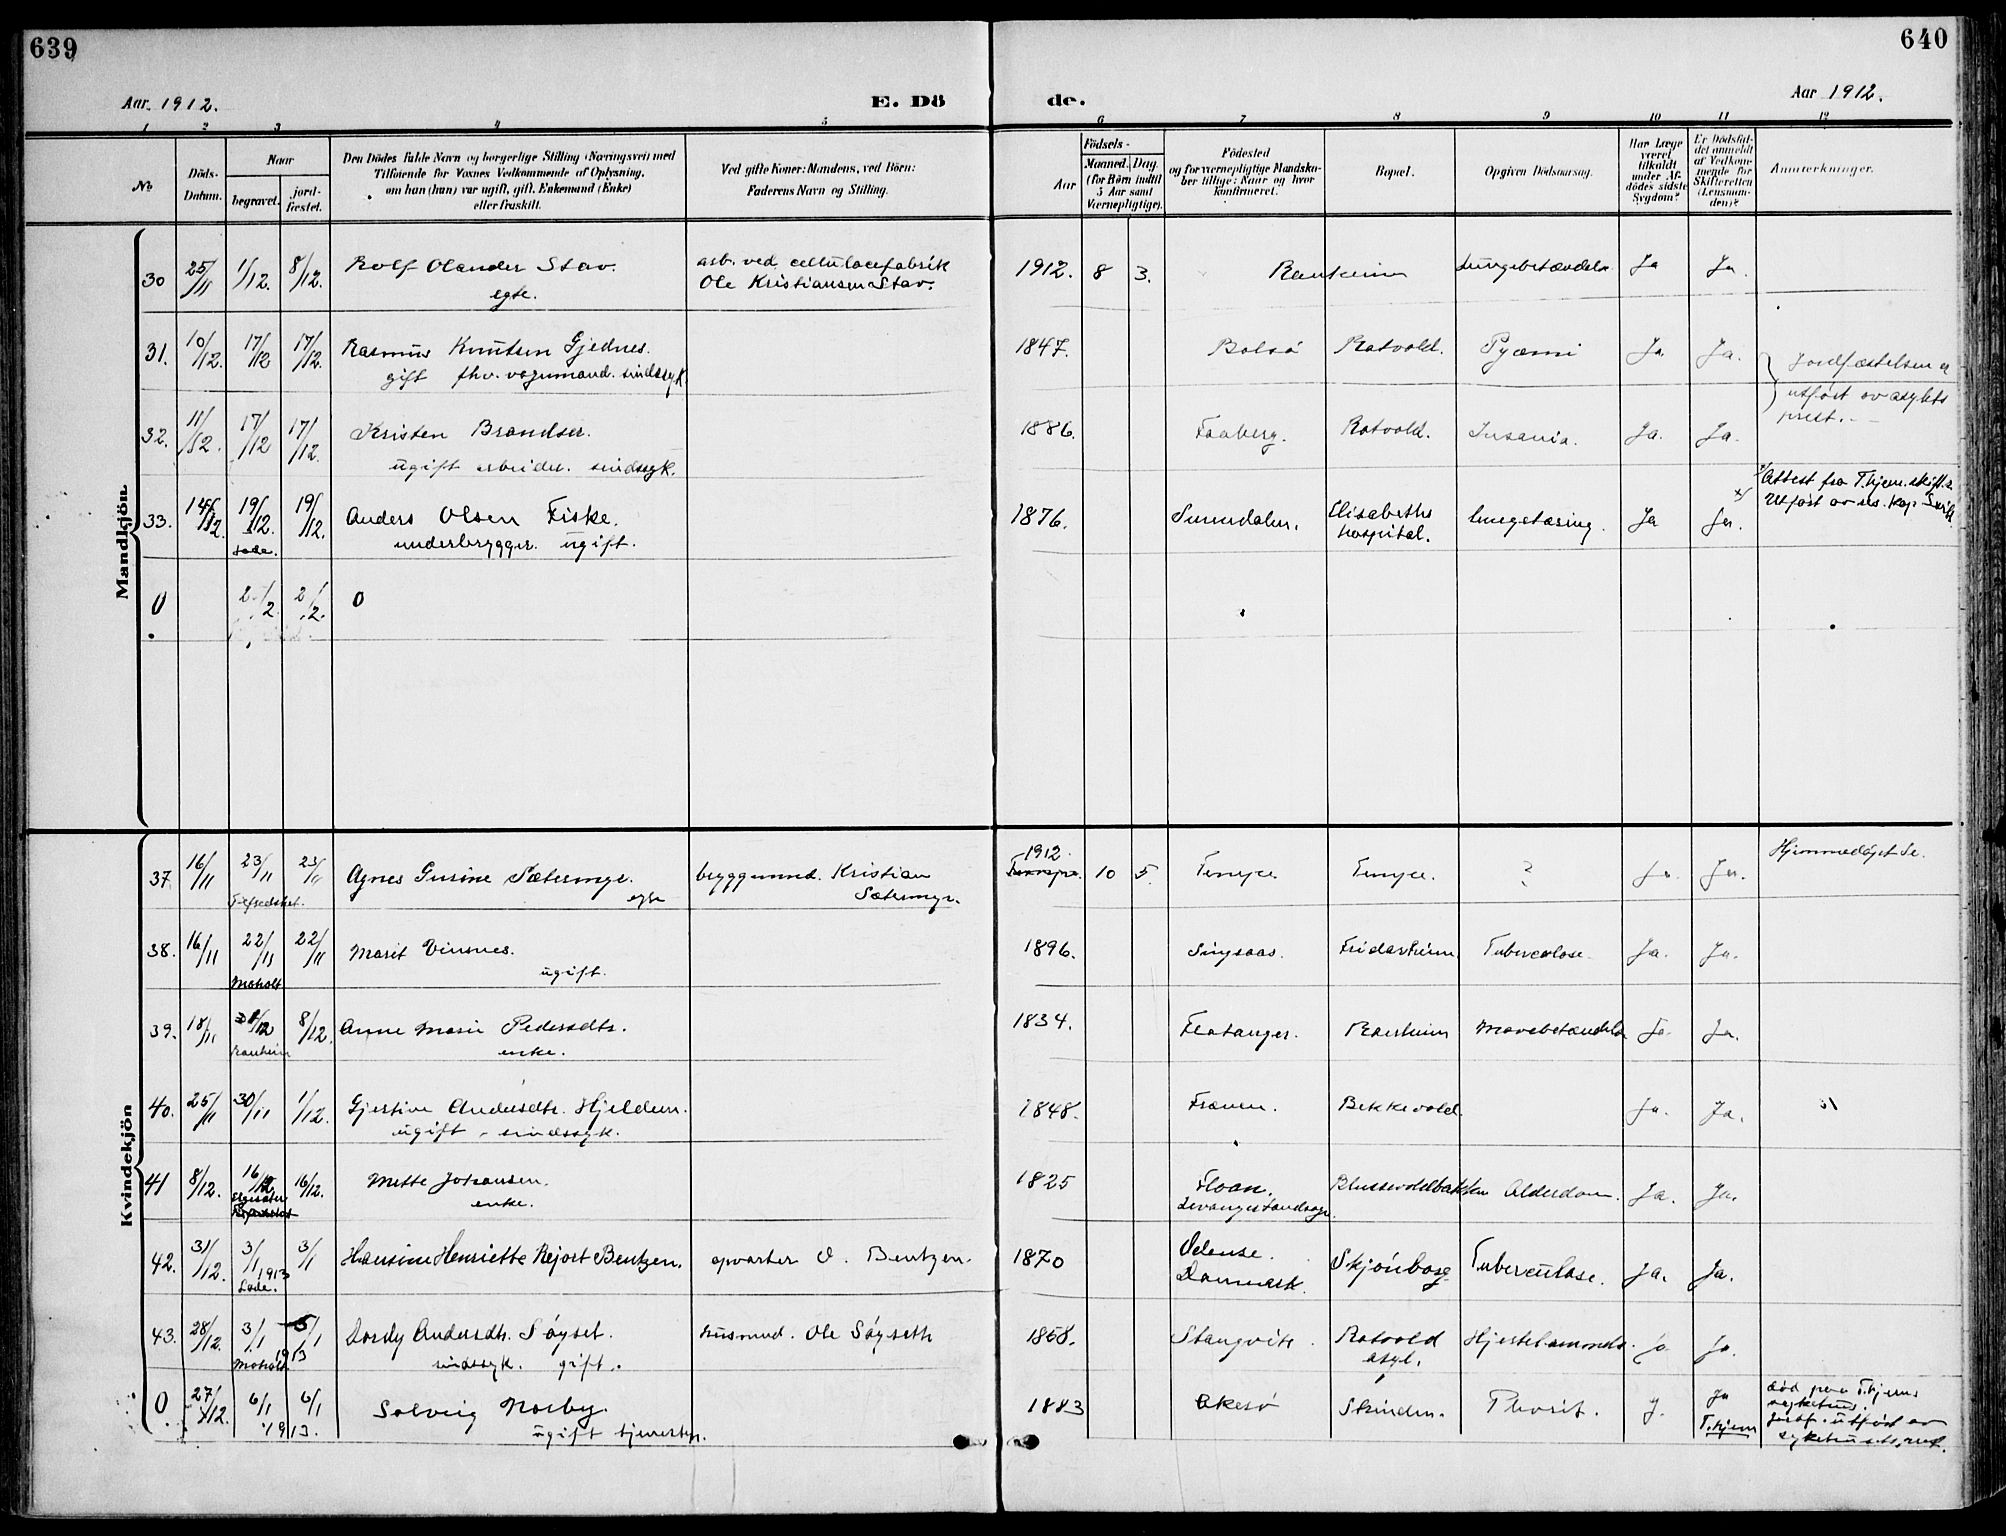 639
640
Aar. 1912.
E. Dö
de.
Aar 1912.
1 2 3 4 5 6 7 8 9 10 11 12
No
Döds-
Datum.
Naar
begravet.
jord-
fæstet.
Den Dödes fulde Navn og borgerlige Stilling (Næringsvei) med
Tilföiende for Voxnes Vedkommende af Oplysning,
om han (hun) var ugift, gift, Enkemand (Enke)
eller fraskilt.
Ved gifte Koner: Mandens, ved Börn:
Faderens Navn og Stilling.
Födsels-
Aar
Maaned. Dag.
(for Börn indtil
5 Aar samt
Værnepligtige).
Födested
og for værnepligtige Mandska-
ber tillige: Naar og hvor
konfirmeret.
Bopæl.
Opgiven Dödsaarsag.
Har Læge
været
tilkaldt
under Af-
dödes sidste
Sygdom?
Er Dödsfal-
det anmeldt
af Vedkom-
mende for
Skifteretten
(Lensman-
den)?
Anmerkninger.
Mandkjön
30 25/11 1/12. 8/12. Rolf Olander Stav. arb. ved cellulosefabrik 1912. 8 3. Ranheim Lungebetændelse Ja Ja.
egte. Ole Kristiansen Stav.
31. 10/12. 17/12 17/12. Rasmus Knutsen Gjednes. 1847. Bolsö Rotvold. Pyæmi Ja. Ja. Jordfæstelsen er
gift fhv. vognmand. sindssyk. utført av asylets
prest.
32. 11/12. 17/12 17/12. Kristen Brandser. 1886. Faaberg. Rotvold. Insania. Ja. Ja.
ugift arbeider. sindssyk.
33. 14/12. 19/12. 19/12. Anders Olsen Fiske. 1876. Sunndalen. Elisabeths Lungetæring. Ja Ja. Attest fra T.hjem. skift.
Lade. underbrygger. ugift. hospital. Utført av res. kap.
0 0
Kvindekjön
37. 16/11 23/11 23/11 Agnes Gusine Sætermyr. byggmand. Kristian 1912. 10 5. Tempe. Tempe. ? Ja. Ja. Hjemmedöpt
egte Sætermyr.
38. 16/11 22/11 22/11 Marit Vinsnes. 1896. Singsaas. Fridarheim Tuberculose. Ja. Ja.
Moholt ugift.
39. 18/11 8/12. Anne Marie Pedersdtr. 1834. Flatanger. Ranheim Mavebetændelse Ja. Ja.
Ranheim enke.
40. 25/11 30/11 1/12. Gjertine Andersdtr. Hjeldum. 1848. Frænen. Bekkevold Ja. Ja.
ugift - sindssyk.
41 8/12. 16/12 16/12. Mette Johansen. 1825 Floan. Blussevoldbakken Alderdom. Ja. Ja.
enke. Levanger landsogn.
42. 31/12. 3/1 3/1 Hansine Henriette Rejort Bentzen. opvarter O. Bentzen. 1870 Odense. Skjönborg Tuberculose. Ja. Ja.
1913 Danmark.
Lade.
43. 28/12. 3/1 5/1 Dordy Andersdtr. Söyset. husmnd. Ole Söyseth 1858. Stangvik Rotvold Hjertelammelse. Ja Ja.
1913
Moholt. sindssyk. gift. asyl.
0 27/12. 6/1 6/1 Solveig Norby. 1883 Akerö Strinden. Ja död paa T.hjems
1913. ugift tjenestep. T.hjem sykehus.
Jordf. utført av
sykehusets prest.